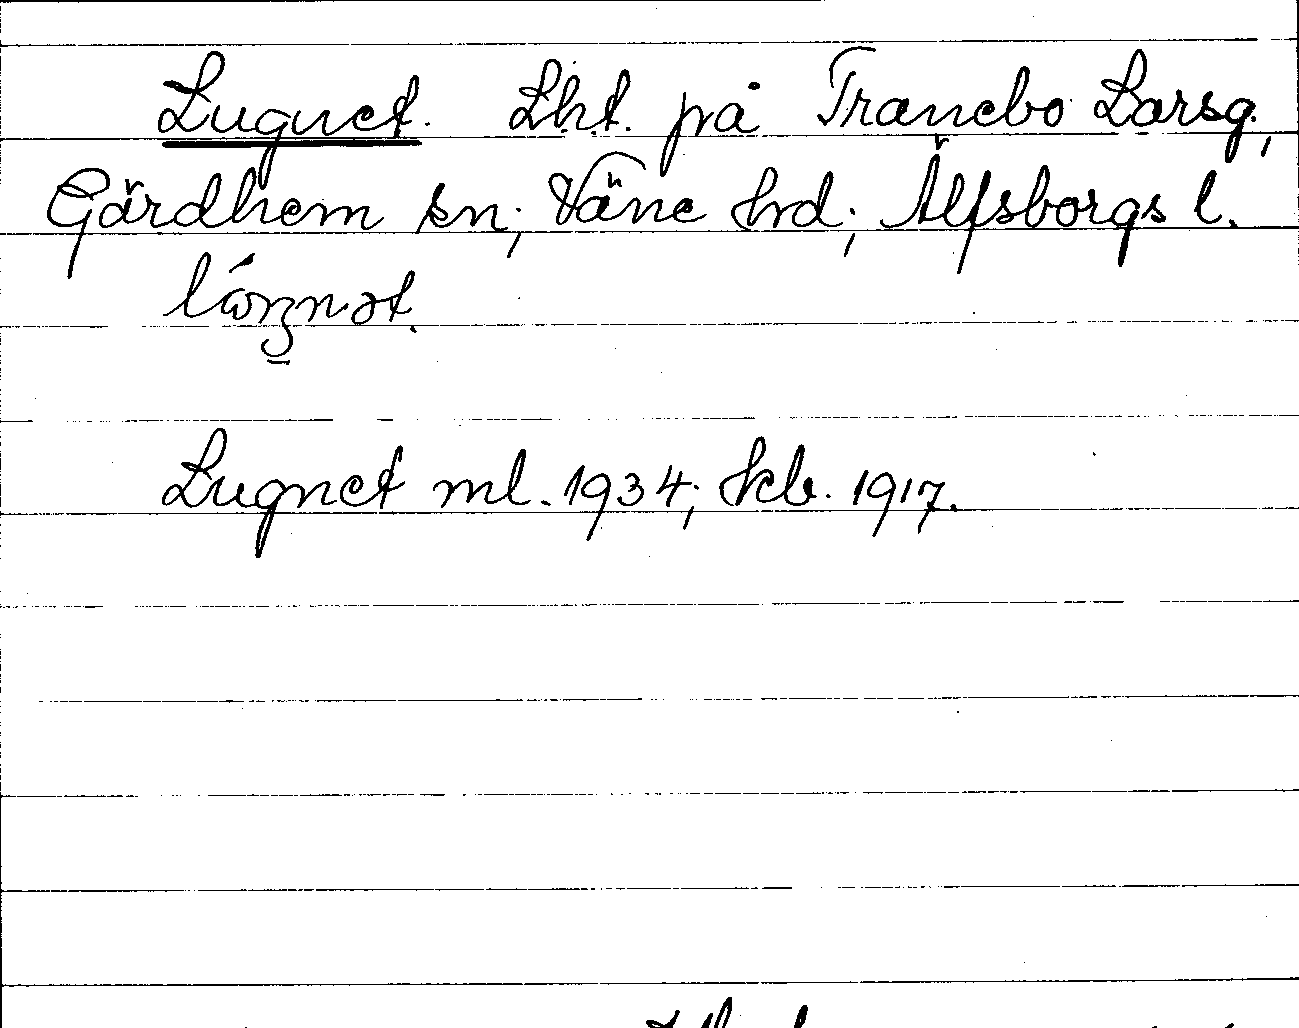 Lugnet. Lht. på Tranebo Larsg.,
Gärdhem sn; Väne hd; Älfsborgs l.
Lugnet ml. 1934; kb. 1917.